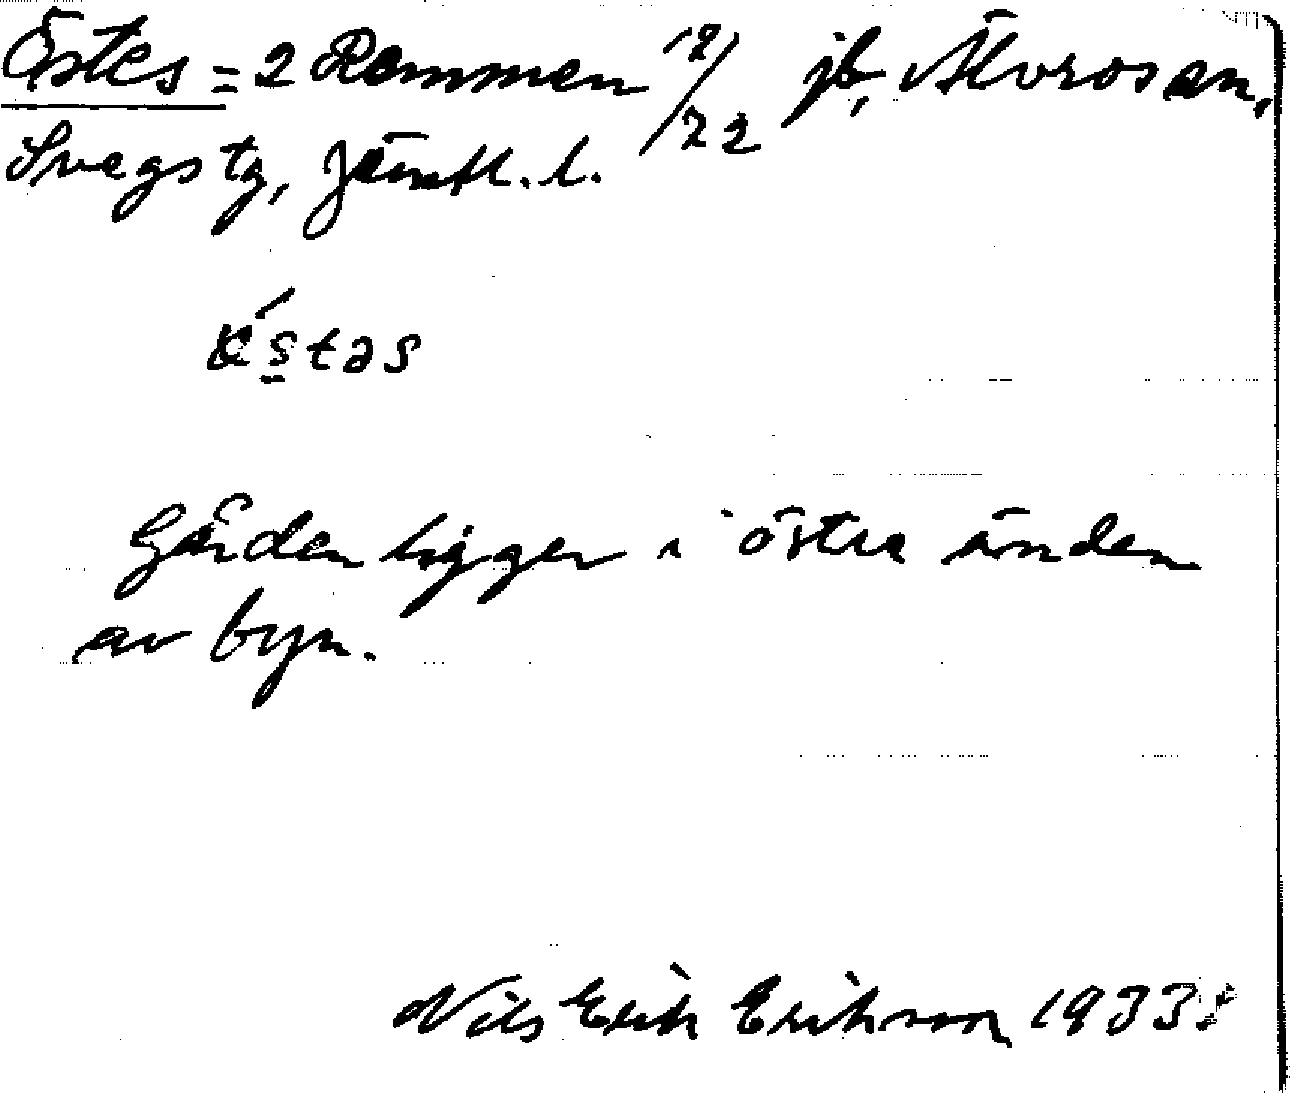 Östes = 2 Remmen 12/72 jb, Älvros sn,
Svegs tg, Jämtl. l.
ǿs̱təs
Gården ligger i östra änden
av byn.
Nils Erik Erikson 1933